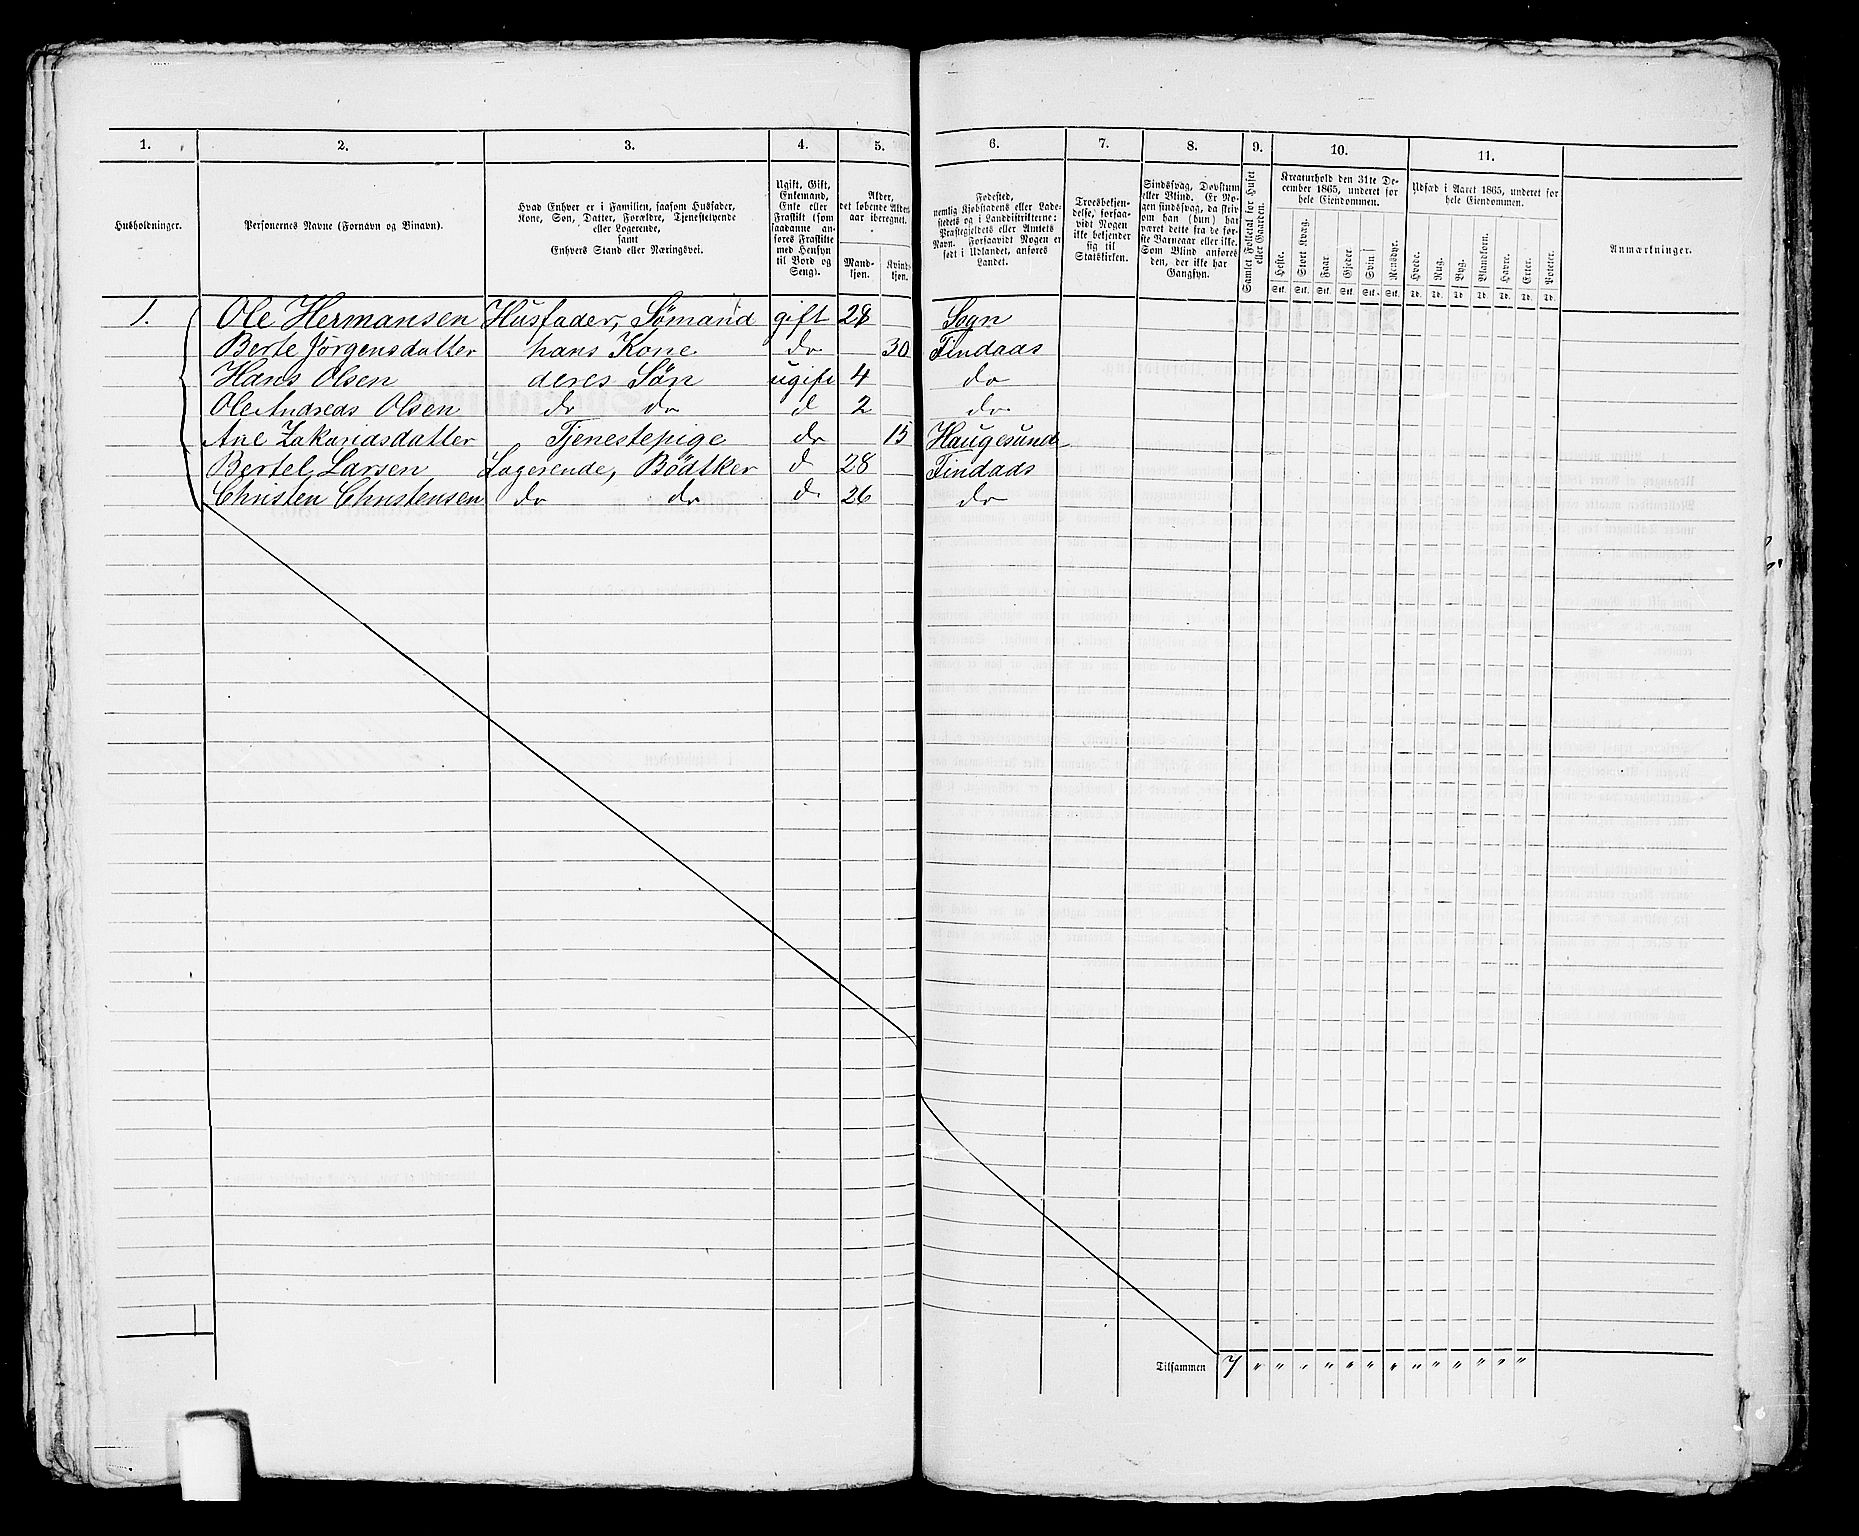 1. 2. 3. 4. 5. 6. 7. 8. 9. 10. 11.
Husholdninger.
Personernes Navne (Fornavn og Binavn).
Hvad Enhver er i Familien, saasom Husfader,
Kone, Søn, Datter, Forældre, Tjenestetyende
eller Logerende,
samt
Enhvers Stand eller Næringsvei.
Ugift, Gift,
Enkemand,
Enke eller
Fraskilt (som
saadanne an-
føres Fraskilte
med Hensyn
til Bord og
Seng).
Alder,
det løbende Alders-
aar iberegnet.
Mand-
kjøn.
Kvind-
kjøn.
Fødested,
nemlig Kjøbstadens eller Lade-
stedets og i Landdistrikterne:
Præstegjeldets eller Amtets
Navn. Forsaavidt Nogen er
født i Udlandet, anføres
Landet.
Troesbekjen-
delse, forsaa-
vidt Nogen
ikke bekjender
sig til
Statskirken.
Sindssvag, Døvstum
eller Blind. Er No-
gen sindssvag, da skriv
om han (hun) har
været dette fra de før-
ste Barneaar eller ikke.
Som Blind anføres
den, der ikke har
Gangsyn.
Samlet Folketal for Huset
eller Gaarden.
Kreaturhold den 31te De-
cember 1865, underet for
hele Eiendommen.
Heste. Stort Kvæg. Faar. Gjeder. Svin. Rensdyr.
Stk. Stk. Stk. Stk. Stk. Stk.
Udsæd i Aaret 1865, underet for
hele Eiendommen.
Hvede. Rug. Byg. Blandkorn. Havre. Erter. Poteter.
Td. Td. Td. Td. Td. Td. Td.
Anmærkninger.
1. Ole Hermansen Husfader, Sømand gift 28 Sogn
Berte Jørgensdatter hans Kone do 30 Findaas
Hans Olsen deres Søn ugift 4 do
Ole Andreas Olsen do do d 2 do
Ane Zakariasdatter Tjenestepige do 15 Haugesund
Bertel Larsen Logerende, Bødtker d 28 Findaas
Christen Christensen do do d. 26 do
Tilsammen 7 " " " " " " " " " " " " "